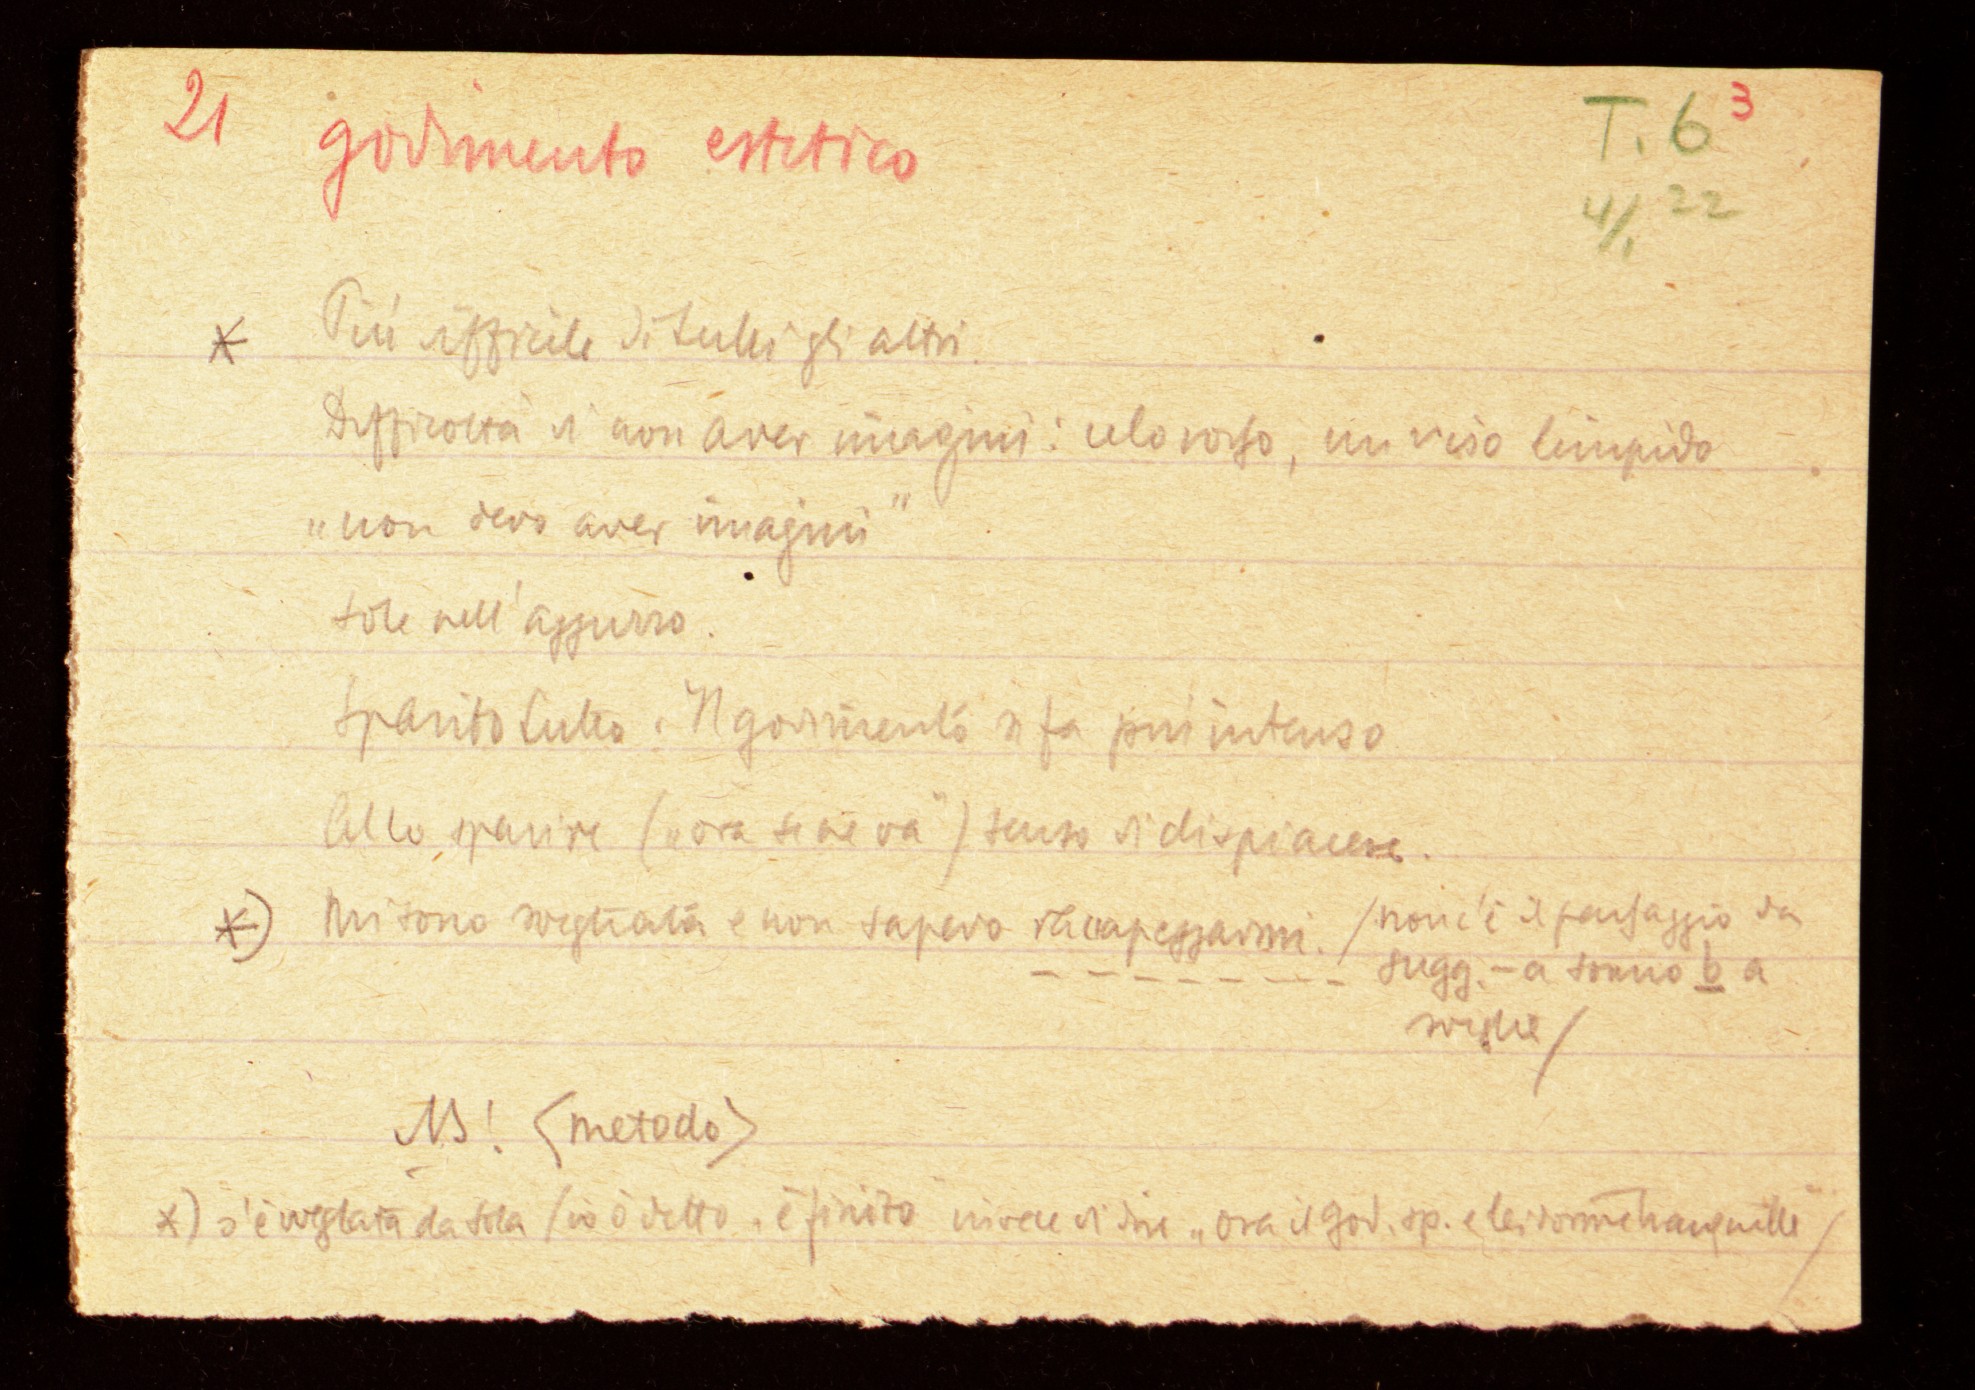 21 godimento estetico T. 6 3
4/1 22
* Più difficile di tutti gli altri.
Difficoltà di non aver imagini: celo rosso, un viso limpido
„non devo aver imagini"
Sole nell'azzurro.
Sparito tutto. Il godimento si fa più intenso
Allo sparire („ora se ne va") senso di dispiacere.
*) Mi sono svegliata e non sapevo raccapezzarmi. / non c'è il passaggio da
sugg. - a sonno b a
veglia /
NB! <metodo>
*) s'è svegliata da sola / io ò detto „è finito" invece di dire „ora il god. sp. e lei dorme tranquilla" /